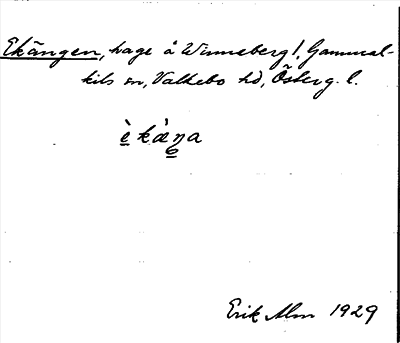 Ekängen, hage å Winneberg1, Gammal-
kils sn, Valkebo hd, Österg. l.
è kæ̀ŋa
Erik Alm 1929